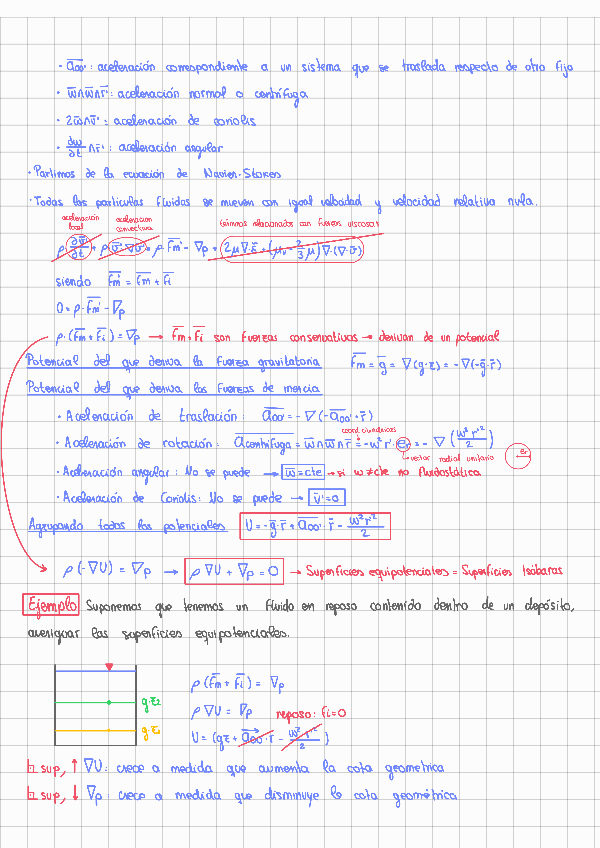 · a̅oo' : aceleración correspondiente a un sistema que se traslada respecto de otro fijo
· w̅∧w̅∧r̅' : aceleración normal o centrífuga
· 2w̅∧v̅' : aceleración de coriolis
· dw̅/dt ∧ r̅' : aceleración angular
· Partimos de la ecuación de Navier-Stokes
· Todas las partículas fluidas se mueven con igual velocidad y velocidad relativa nula.
aceleración local aceleración convectiva términos relacionados con fuerzas viscosas
ρ ∂v̅/∂t + ρ v̅·∇v̅ = ρ·F̅m' - ∇p +
siendo F̅m' = F̅m + F̅i
0 = ρ·F̅m' - ∇p
ρ·(F̅m + F̅i) = ∇p → F̅m + F̅i son fuerzas conservativas → derivan de un potencial
Potencial del que deriva la fuerza gravitatoria F̅m = g̅ = ∇(g·z) = -∇(-g̅·r̅)
Potencial del que deriva las fuerzas de inercia
· Aceleración de traslación: a̅oo' = -∇(-a̅oo'·r̅)
coord. cilíndricas
· Aceleración de rotación: a̅centrífuga = w̅∧w̅∧r̅' = -w²·r'·e̅r = -∇(w²·r'²/2)
vector radial unitario er
· Aceleración angular: No se puede → w̅ = cte → si w ≠ cte no fluidostática
· Aceleración de Coriolis: No se puede → v̅' = 0
Agrupando todos los potenciales U = -g̅·r̅ + a̅oo'·r̅ - w²r²/2
ρ(-∇U) = ∇p → ρ∇U + ∇p = 0 → Superficies equipotenciales = Superficies Isóbaras
Ejemplo Suponemos que tenemos un fluido en reposo contenido dentro de un depósito,
averiguar las superficies equipotenciales.
ρ(F̅m + F̅i) = ∇p
g·z2
ρ∇U = ∇p reposo: Fi=0
g·z1
U = (gz + a̅oo'·r - w²·r²/2)
sup, ↑ ∇U: crece a medida que aumenta la cota geométrica
sup, ↓ ∇p: crece a medida que disminuye la cota geométrica